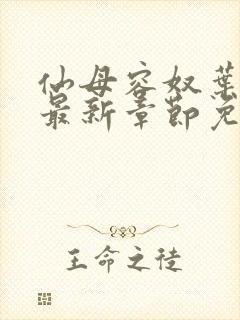 仙母容奴葉
最新章節免
王命之徒